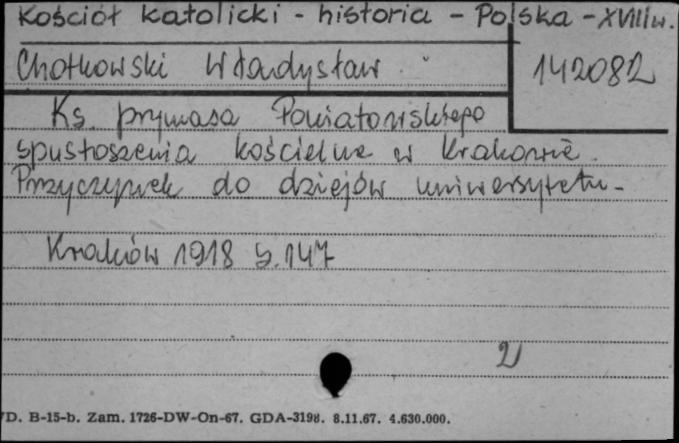 Kościół katolicki - historia - Polska - XVIII w.
Chotkowski Władysław
142082
Ks. prymasa Poniatowskiego
spustoszenia kościelne w Krakowie.
Przyczynek do dziejów uniwersytetu -
Kraków 1918 s. 147
D. B-15-b. Zam. 1726-DW-On-67. GDA-3198. 8.11.67. 4.630.000.